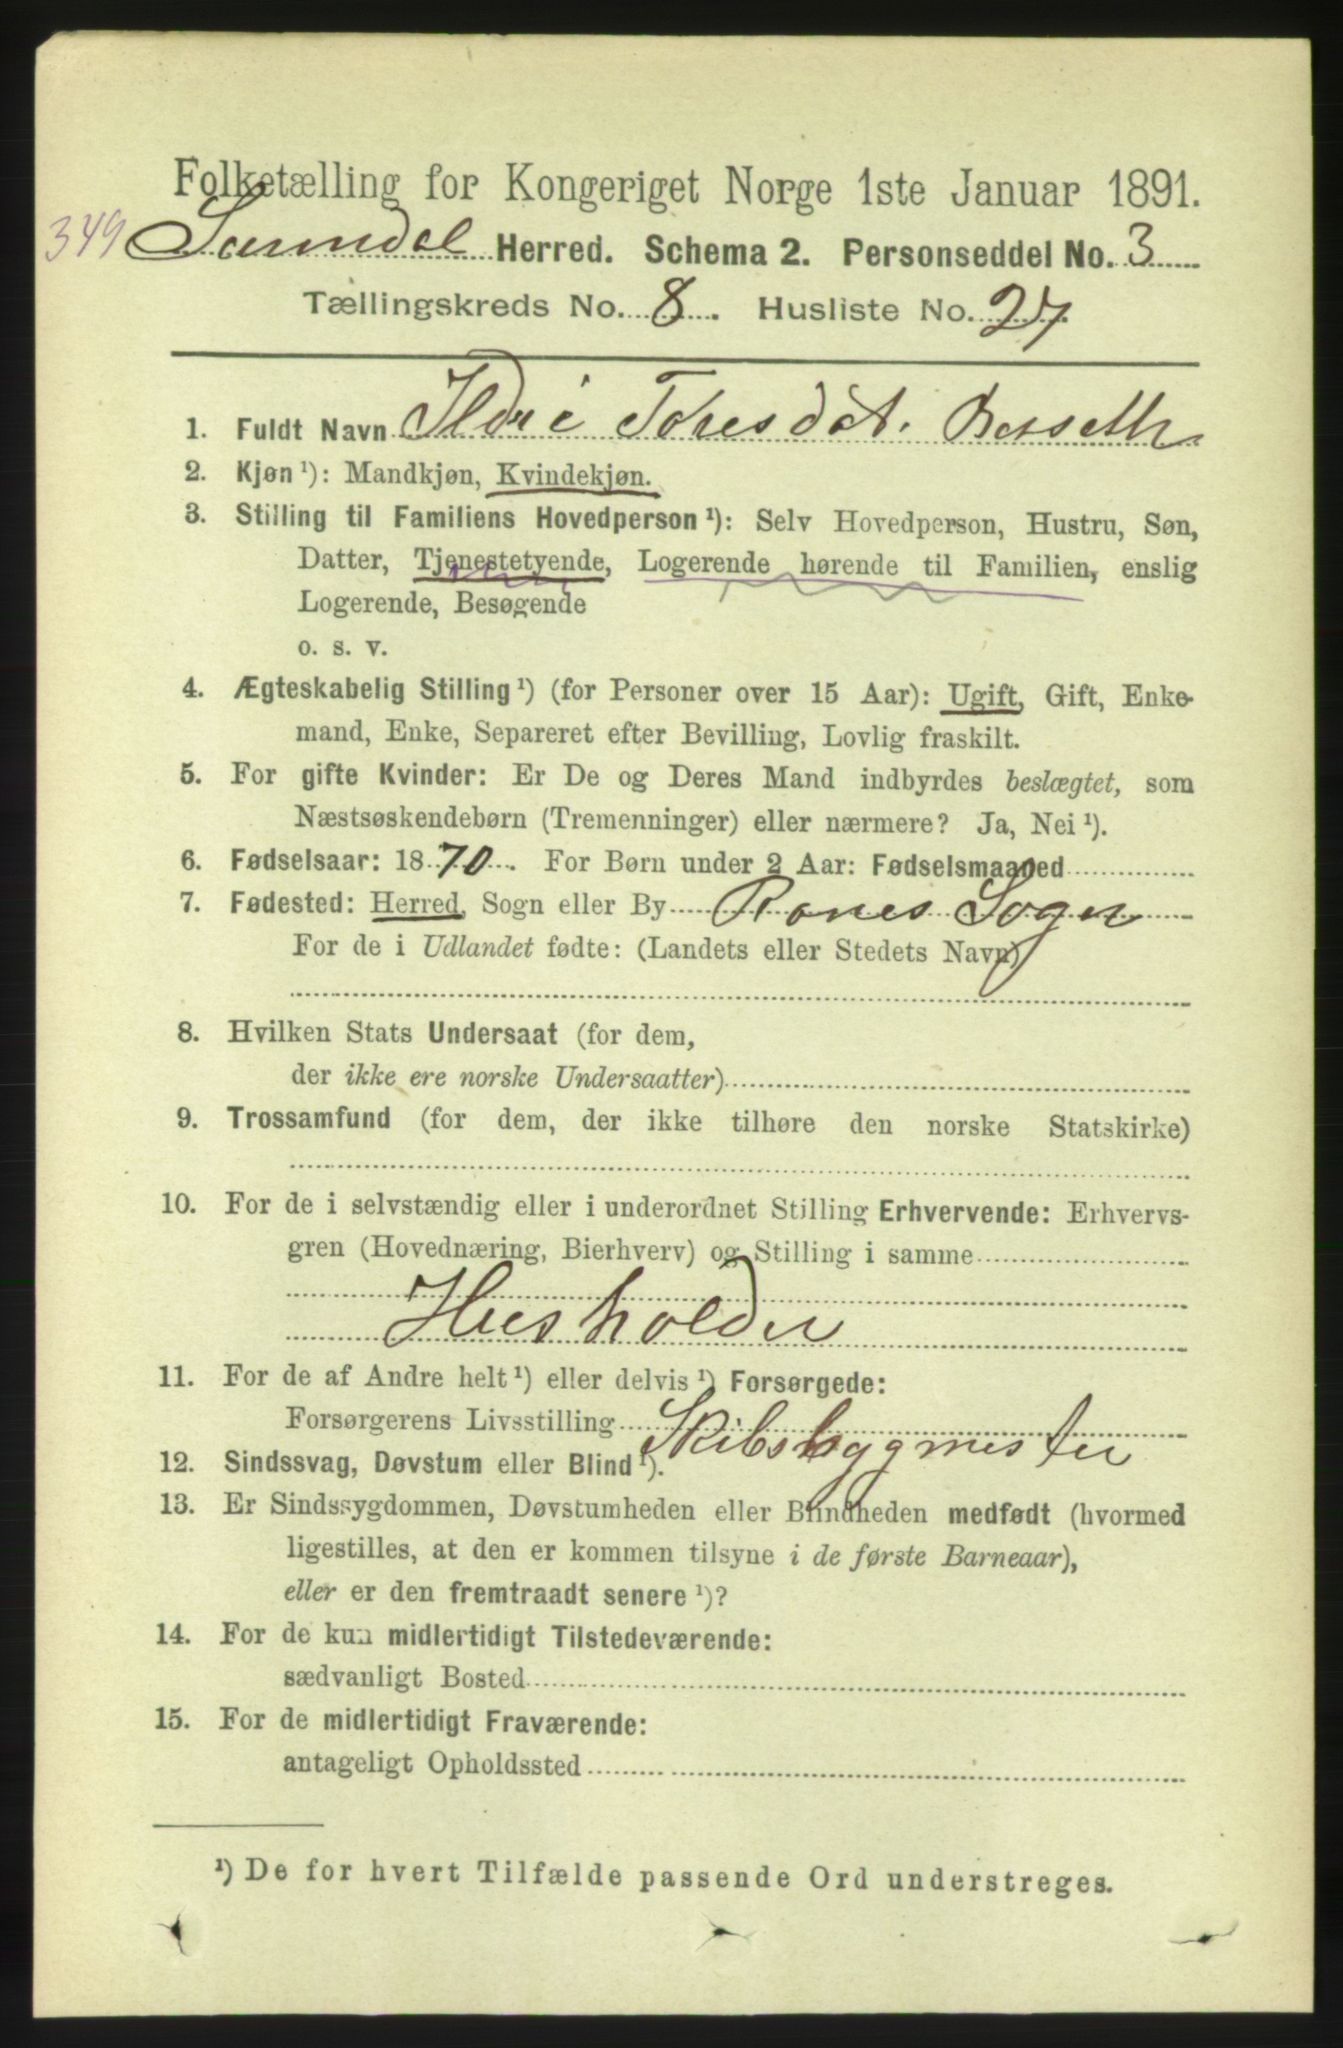 Folketælling for Kongeriget Norge 1ste Januar 1891.
349 Surendal Herred. Schema 2. Personseddel No. 3
Tællingskreds No. 8. Husliste No. 27.
1. Fuldt Navn Ildri Toresdat. Bæsseth
2. Kjøn ¹): Mandkjøn, Kvindekjøn.
3. Stilling til Familiens Hovedperson ¹): Selv Hovedperson, Hustru, Søn,
Datter, Tjenestetyende, Logerende hørende til Familien, enslig
Logerende, Besøgende
o. s. v.
4. Ægteskabelig Stilling ¹) (for Personer over 15 Aar): Ugift, Gift, Enke-
mand, Enke, Separeret efter Bevilling, Lovlig fraskilt.
5. For gifte Kvinder: Er De og Deres Mand indbyrdes beslægtet, som
Næstsøskendebørn (Tremenninger) eller nærmere? Ja, Nei ¹).
6. Fødselsaar: 1870. For Børn under 2 Aar: Fødselsmaaned
7. Fødested: Herred, Sogn eller By Ranes Sogn
For de i Udlandet fødte: (Landets eller Stedets Navn)
8. Hvilken Stats Undersaat (for dem,
der ikke ere norske Undersaatter)
9. Trossamfund (for dem, der ikke tilhøre den norske Statskirke)
10. For de i selvstændig eller i underordnet Stilling Erhvervende: Erhvervs-
gren (Hovednæring, Bierhverv) og Stilling i samme
Husholder
11. For de af Andre helt ¹) eller delvis ¹) Forsørgede:
Forsørgerens Livsstilling Skibsbygmester
12. Sindssvag, Døvstum eller Blind ¹).
13. Er Sindssygdommen, Døvstumheden eller Blindheden medfødt (hvormed
ligestilles, at den er kommen tilsyne i de første Barneaar),
eller er den fremtraadt senere ¹)?
14. For de kun midlertidigt Tilstedeværende:
sædvanligt Bosted
15. For de midlertidigt Fraværende:
antageligt Opholdssted
¹) De for hvert Tilfælde passende Ord understreges.